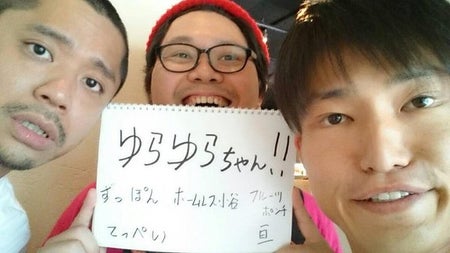 ゆらゆらちゃん!!
すっぽん
てっぺい
ホームレス小谷
フルーツ
ポンチ
亘